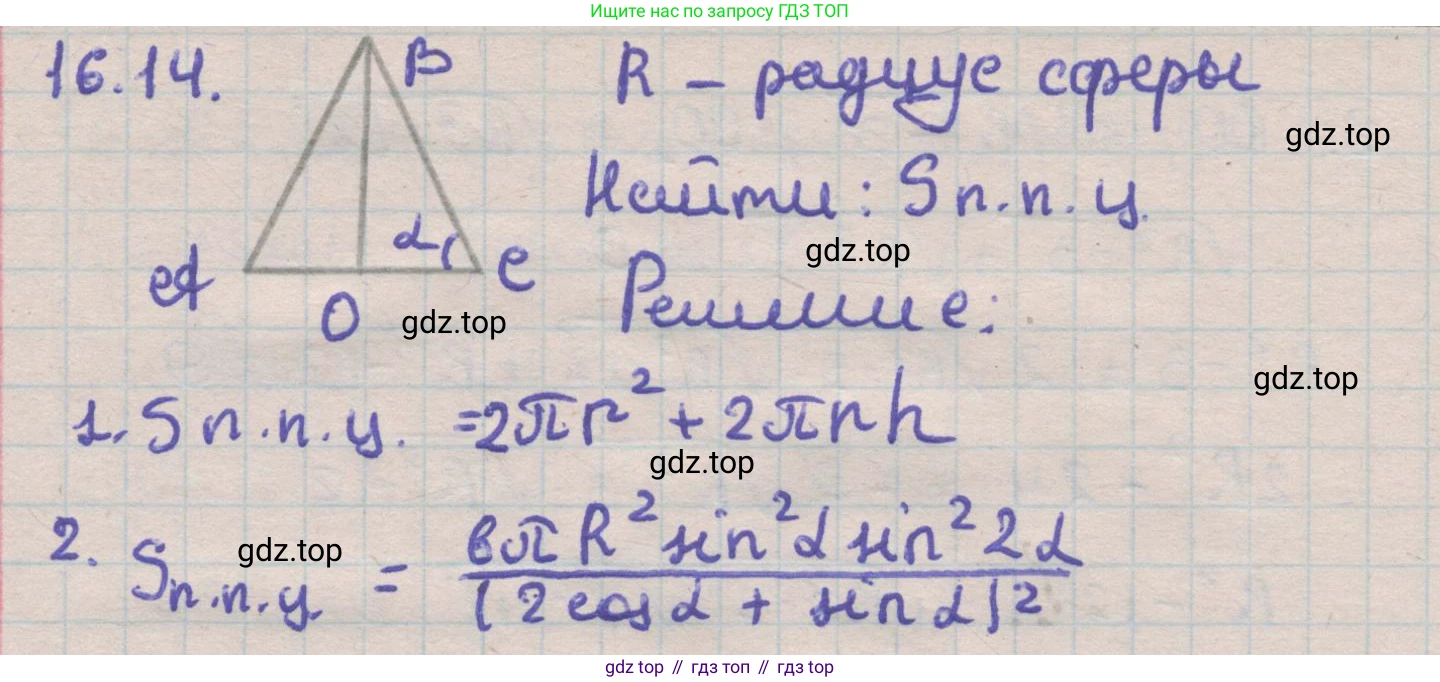 Ищите нас по запросу ГДЗ ТОП
16.14.
B
R – радиус сферы
gdz.top
Найти: S п.п.ц.
gdz.top
α
A
C
O
gdz.top
Решение:
gdz.top
1. S п.п.ц. = 2πr² + 2πrh
gdz.top
2. Sп.п.ц. = 6πR² sin²α sin²2α / (2cosα + sinα)²
gdz.top
gdz top // гдз топ // гдз top